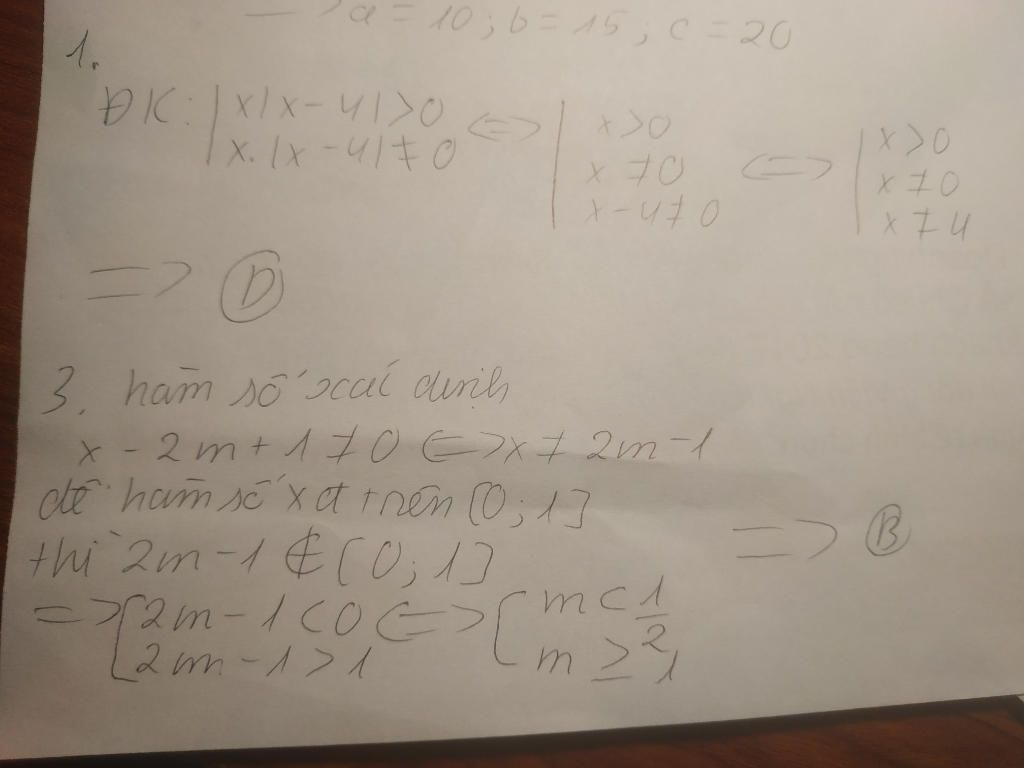 => a = 10 ; b = 15 ; c = 20
1.
ĐK: | x|x - 4| > 0 <=> | x > 0 <=> | x > 0
| x.|x - 4| ≠ 0 | x ≠ 0 | x ≠ 0
| x - 4 ≠ 0 | x ≠ 4
=> (D)
3. hàm số xác định
x - 2m + 1 ≠ 0 <=> x ≠ 2m - 1
để hàm số xđ trên [0 ; 1]
thì 2m - 1 ∉ [0 ; 1] => (B)
=> [ 2m - 1 < 0 <=> [ m < 1/2
[ 2m - 1 > 1 [ m ≥ 1